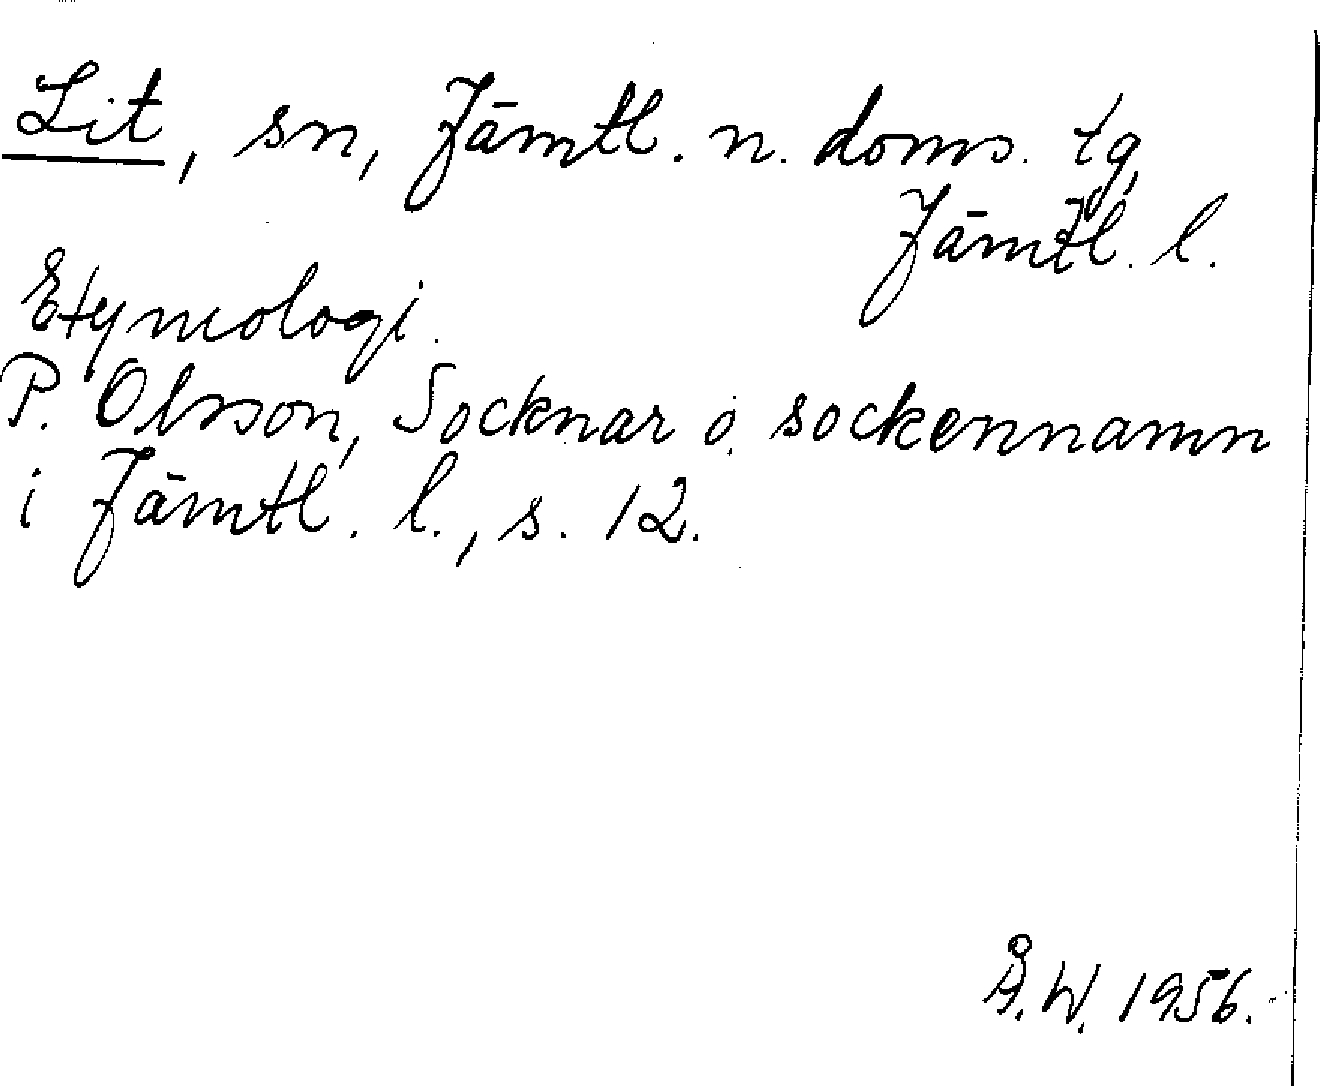 Lit, sn, Jämtl. n. doms. tg,
Jämtl. l.
Etymologi.
P. Olsson, Socknar o. sockennamn
i Jämtl. l., s. 12.
Å.W. 1956.